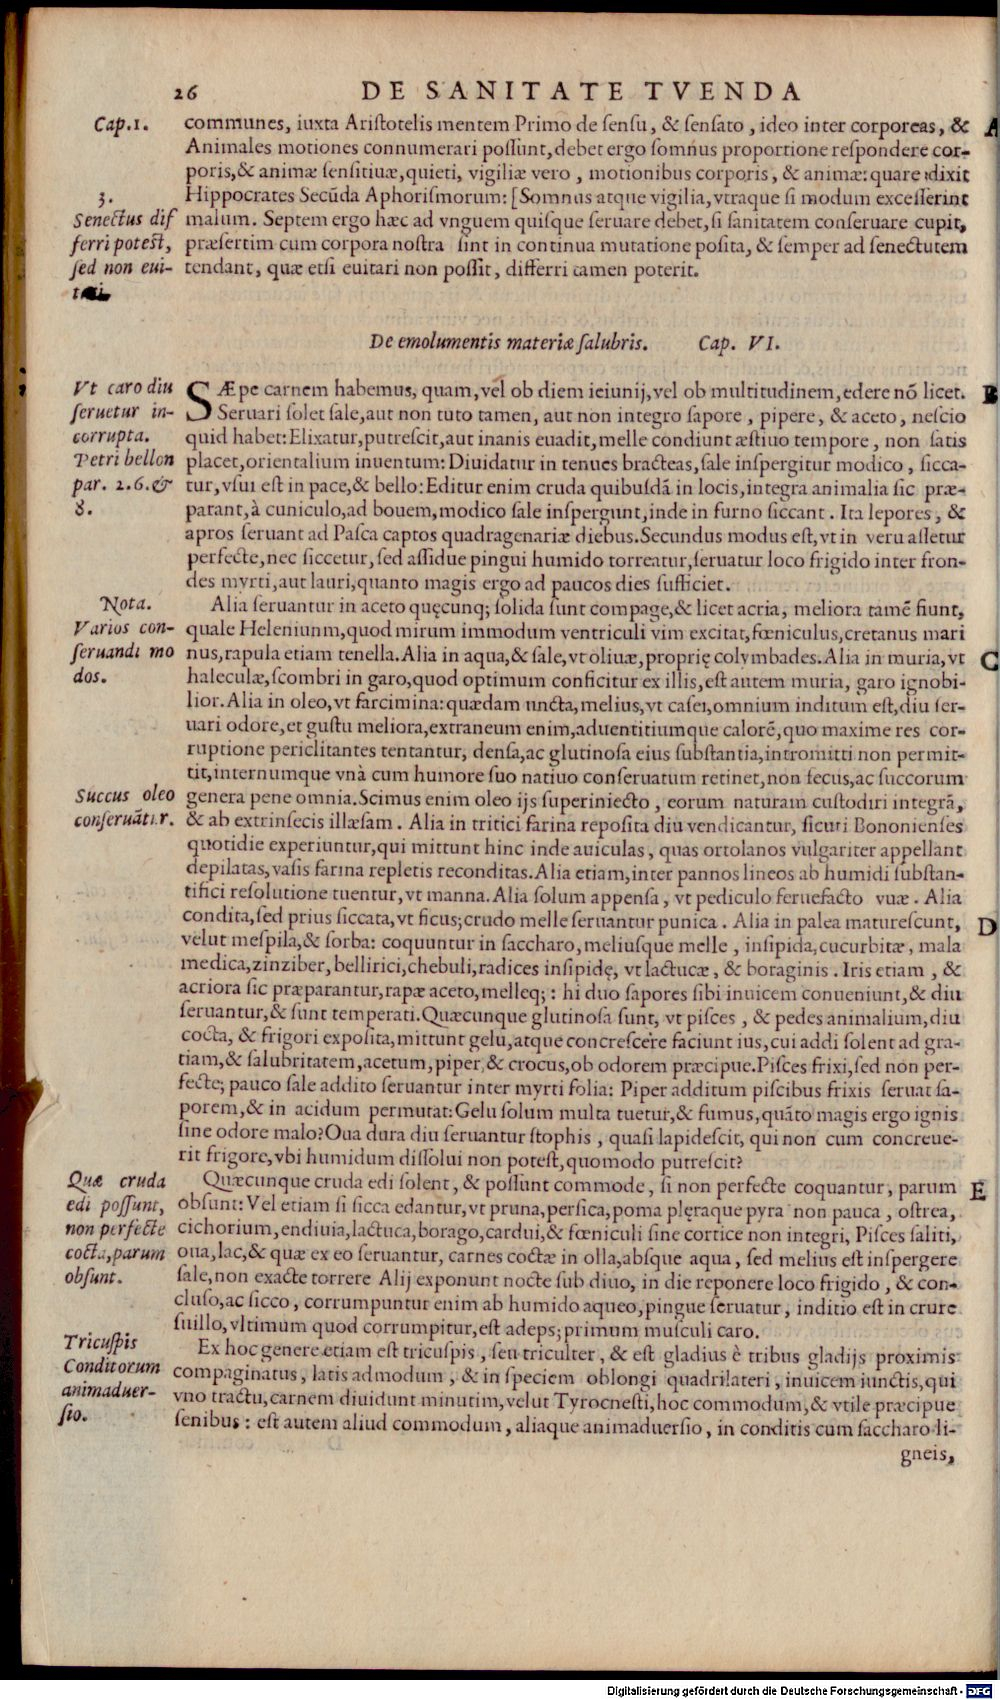 26 DE SANITATE TVENDA
Cap.1.
communes, iuxta Aristotelis mentem Primo de sensu, & sensato, ideo inter corporeas, &
Animales motiones connumerari possunt, debet ergo somnus proportione respondere cor-
poris, & animæ sensitiuæ, quieti, vigiliæ vero, motionibus corporis, & animæ: quare dixit
Hippocrates Secūda Aphorismorum: [Somnus atque vigilia, vtraque si modum excesserint
malum. Septem ergo hæc ad vnguem quisque seruare debet, si sanitatem conseruare cupit,
præsertim cum corpora nostra sint in continua mutatione posita, & semper ad senectutem
tendant, quæ etsi euitari non possit, differri tamen poterit.
A
3.
Senectus dif
ferri potest,
sed non eui-
De emolumentis materiæ salubris. Cap. VI.
Vt caro diu
seruetur in-
corrupta.
Petri bellon
par. 2.6.&
8.
SÆpe carnem habemus, quam, vel ob diem ieiunij, vel ob multitudinem, edere nō licet.
Seruari solet sale, aut non tuto tamen, aut non integro sapore, pipere, & aceto, nescio
quid habet: Elixatur, putrescit, aut inanis euadit, melle condiunt æstiuo tempore, non satis
placet, orientalium inuentum: Diuidatur in tenues bracteas, sale inspergitur modico, sicca-
tur, vsui est in pace, & bello: Editur enim cruda quibusdā in locis, integra animalia sic præ-
parant, à cuniculo, ad bouem, modico sale inspergunt, inde in furno siccant. Ita lepores, &
apros seruant ad Pasca captos quadragenariæ diebus. Secundus modus est, vt in veru assetur
perfecte, nec siccetur, sed assidue pingui humido torreatur, seruatur loco frigido inter fron-
des myrti, aut lauri, quanto magis ergo ad paucos dies sufficiet.
B
Nota.
Varios con-
seruandi mo
dos.
Alia seruantur in aceto quęcunq; solida sunt compage, & licet acria, meliora tamē fiunt,
quale Heleniunm, quod mirum immodum ventriculi vim excitat, fœniculus, cretanus mari
nus, rapula etiam tenella. Alia in aqua, & sale, vt oliuæ, proprię colymbades. Alia in muria, vt
haleculæ, scombri in garo, quod optimum conficitur ex illis, est autem muria, garo ignobi-
lior. Alia in oleo, vt farcimina: quædam uncta, melius, vt casei, omnium inditum est, diu ser-
uari odore, et gustu meliora, extraneum enim, aduentitiumque calorē, quo maxime res cor-
ruptione periclitantes tentantur, densa, ac glutinosa eius substantia, intromitti non permit-
tit, internumque vnà cum humore suo natiuo conseruatum retinet, non secus, ac succorum
genera pene omnia. Scimus enim oleo ijs superiniecto, eorum naturam custodiri integrā,
& ab extrinsecis illæsam. Alia in tritici farina reposita diu vendicantur, sicuti Bononienses
quotidie experiuntur, qui mittunt hinc inde auiculas, quas ortolanos vulgariter appellant
depilatas, vasis farina repletis reconditas. Alia etiam, inter pannos lineos ab humidi substan-
tifici resolutione tuentur, vt manna. Alia solum appensa, vt pediculo feruefacto vuæ. Alia
condita, sed prius siccata, vt ficus; crudo melle seruantur punica. Alia in palea maturescunt,
velut mespila, & sorba: coquuntur in saccharo, meliusque melle, insipida, cucurbitæ, mala
medica, zinziber, bellirici, chebuli, radices insipidę, vt lactucæ, & boraginis. Iris etiam, &
acriora sic præparantur, rapæ aceto, melleq; : hi duo sapores sibi inuicem conueniunt, & diu
seruantur, & sunt temperati. Quæcunque glutinosa sunt, vt pisces, & pedes animalium, diu
cocta, & frigori exposita, mittunt gelu, atque concrescere faciunt ius, cui addi solent ad gra-
tiam, & salubritatem, acetum, piper, & crocus, ob odorem præcipue. Pisces frixi, sed non per-
fecte; pauco sale addito seruantur inter myrti folia: Piper additum piscibus frixis seruat sa-
porem, & in acidum permutat: Gelu solum multa tuetur, & fumus, quāto magis ergo ignis
sine odore malo? Oua dura diu seruantur stophis, quasi lapidescit, qui non cum concreue-
rit frigore, vbi humidum dissolui non potest, quomodo putrescit?
C
Succus oleo
conseruātur.
D
Quæ cruda
edi possunt,
non perfecte
cocta, parum
obsunt.
Quæcunque cruda edi solent, & possunt commode, si non perfecte coquantur, parum
obsunt: Vel etiam si sicca edantur, vt pruna, persica, poma plęraque pyra non pauca, ostrea,
cichorium, endiuia, lactuca, borago, cardui, & fœniculi sine cortice non integri, Pisces saliti,
oua, lac, & quæ ex eo seruantur, carnes coctæ in olla, absque aqua, sed melius est inspergere
sale, non exacte torrere Alij exponunt nocte sub diuo, in die reponere loco frigido, & con-
cluso, ac sicco, corrumpuntur enim ab humido aqueo, pingue seruatur, inditio est in crure
suillo, vltimum quod corrumpitur, est adeps; primum musculi caro.
E
Tricuspis
Conditorum
animaduer-
sio.
Ex hoc genere etiam est tricuspis, seu triculter, & est gladius è tribus gladijs proximis
compaginatus, latis admodum, & in speciem oblongi quadrilateri, inuicem iunctis, qui
vno tractu, carnem diuidunt minutim, velut Tyrocnesti, hoc commodum, & vtile præcipue
senibus: est autem aliud commodum, aliaque animaduersio, in conditis cum saccharo li-
gneis,
Digitalisierung gefördert durch die Deutsche Forschungsgemeinschaft - DFG